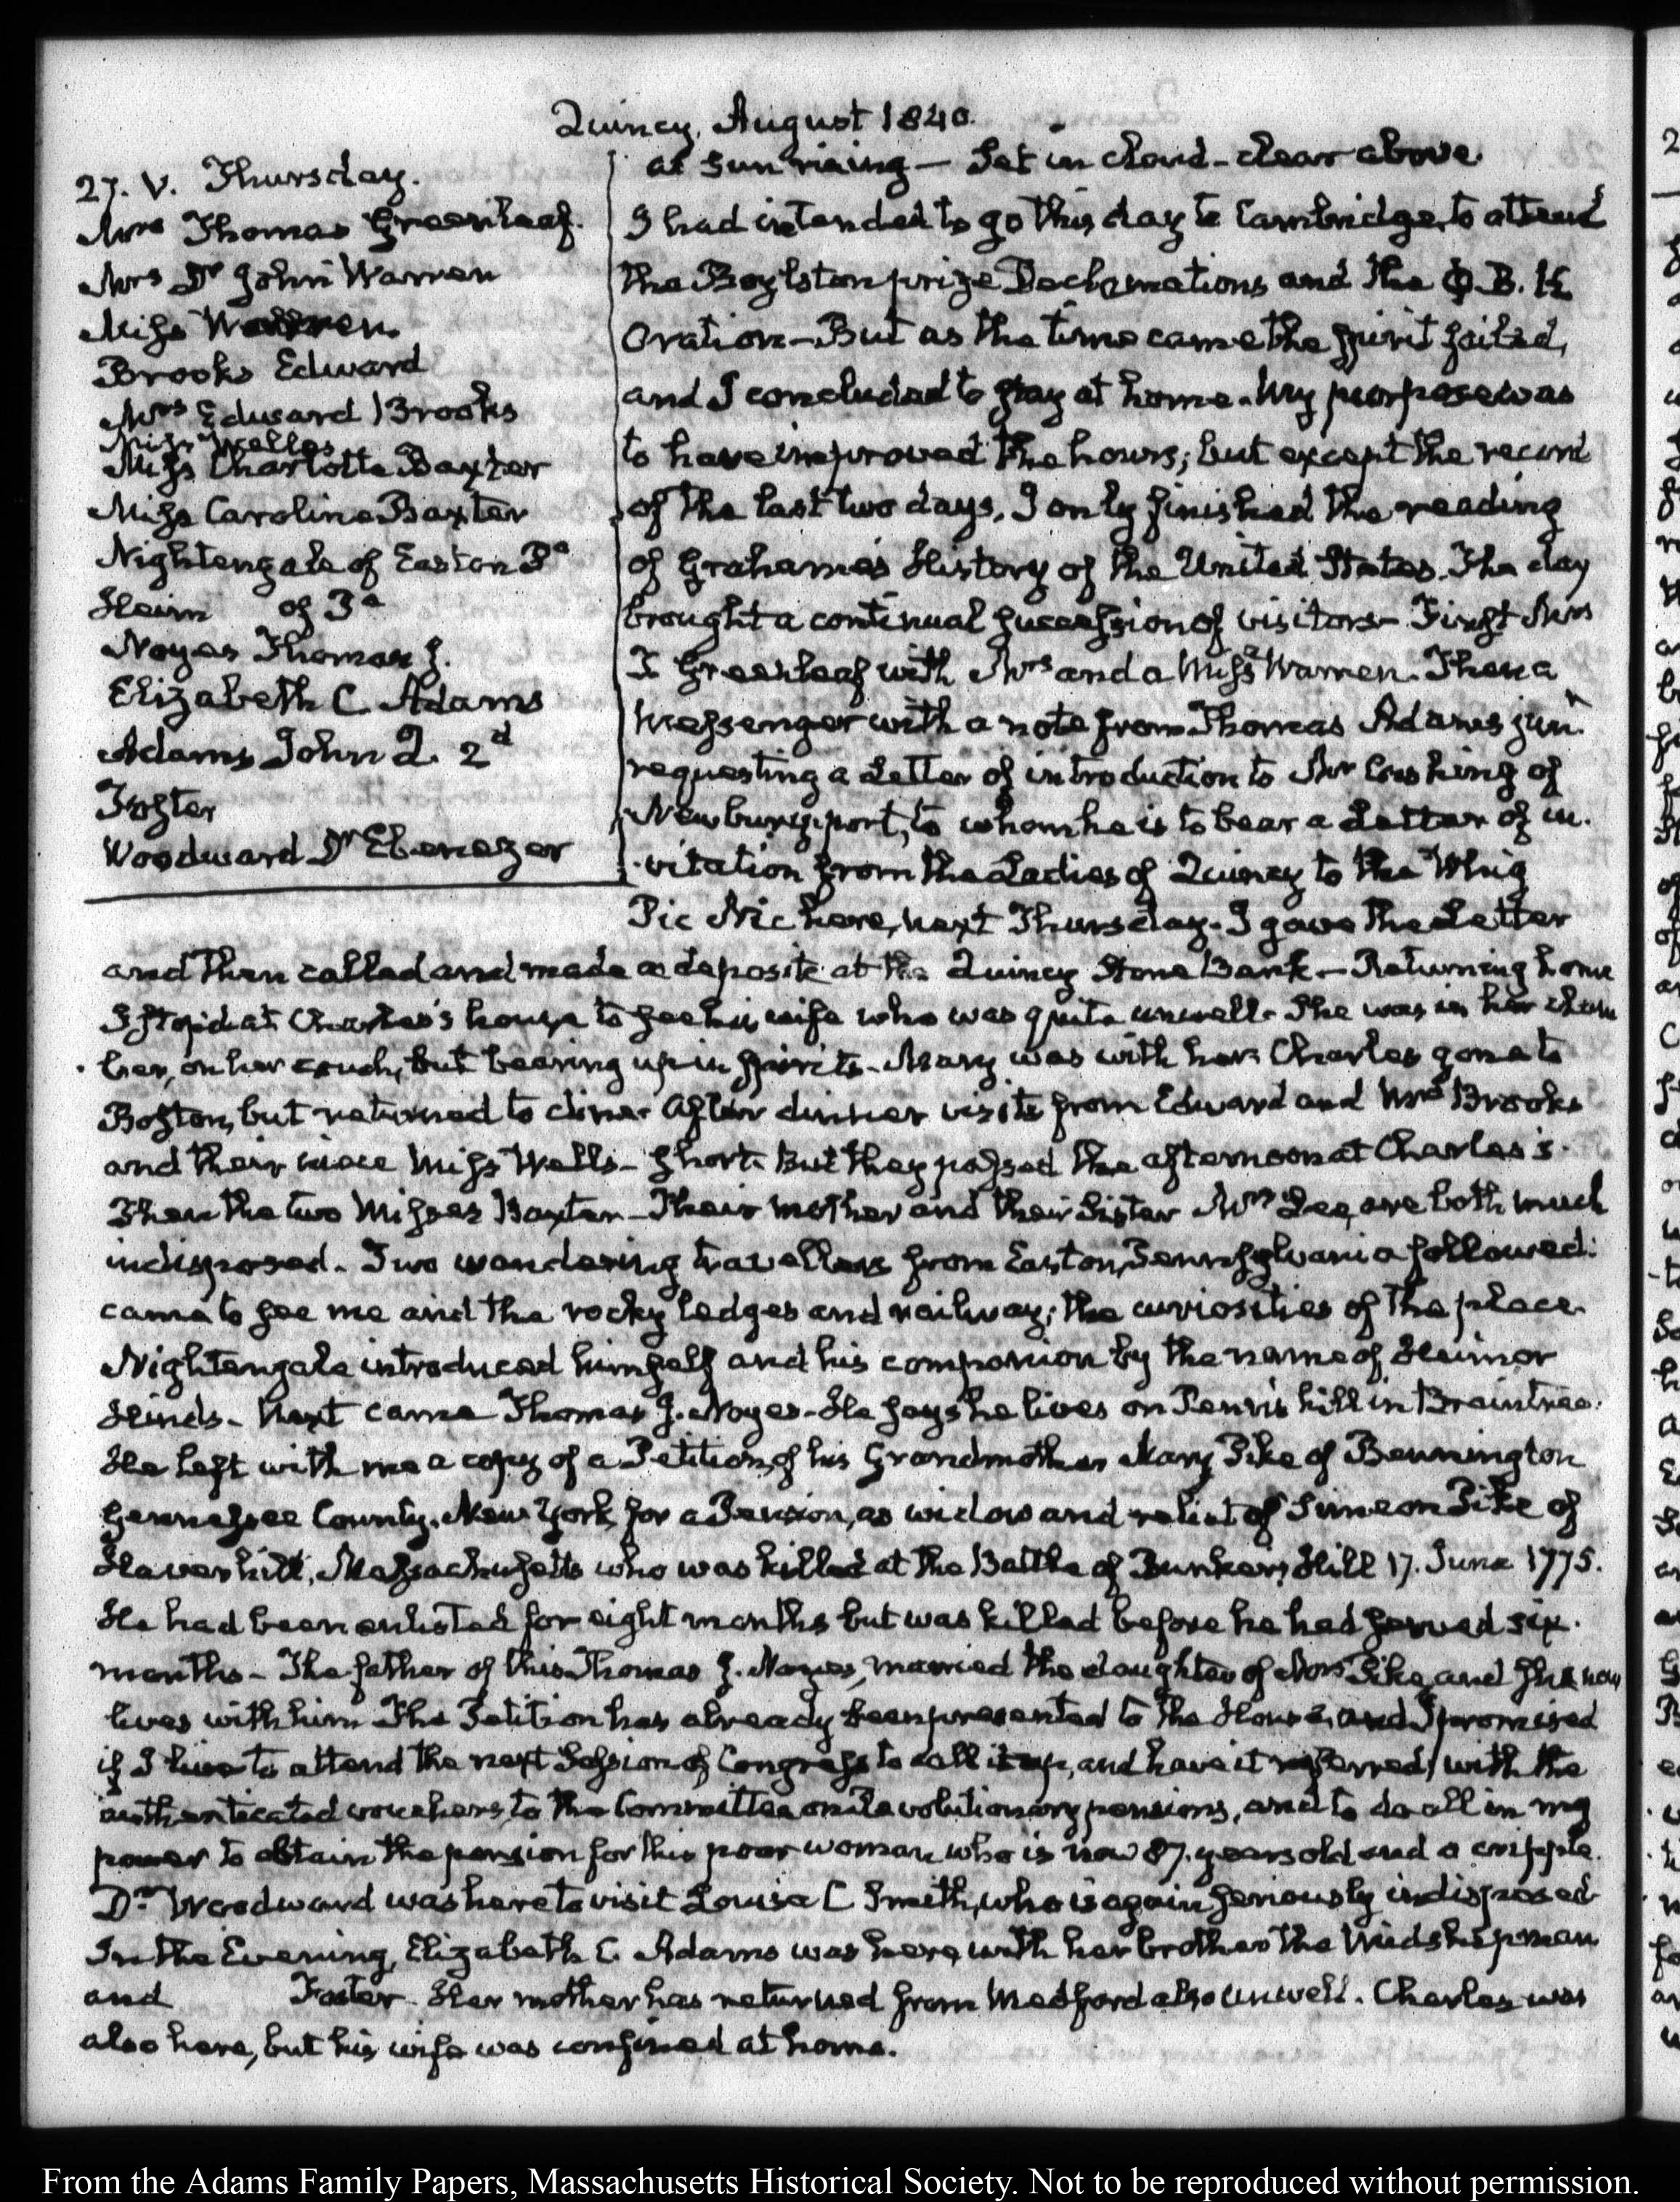 Quincy, August 1840.
27. V. Thursday.
Mrs Thomas Greenleaf.
Mrs Dr John Warren
Miss Warren
Brooks Edward
Mrs Edward Brooks
Miss Welles
Miss Charlotte Baxter
Miss Caroline Baxter
Nightengale of Easton Pa
Heim of Pa
Noyes Thomas J.
Elizabeth C. Adams
Adams John Q. 2d
Foster
Woodward Dr Ebenezer
at Sun rising — Set in cloud - clear above
I had intended to go this day to Cambridge, to attend
the Boylston prize Declamations and the Φ.B.K.
Oration — But as the time came the spirit failed,
and I concluded to stay at home. My purpose was
to have improved the hours; but except the record
of the last two days, I only finished the reading
of Grahame's History of the United States. The day
brought a continual succession of visitors — First Mrs
T Greenleaf with Mrs and a Miss Warren. Then a
Messenger with a note from Thomas Adams junr
requesting a Letter of introduction to Mr Cushing of
Newburyport, to whom he is to bear a Letter of in-
-vitation from the Ladies of Quincy to the Whig
Pic Nic here, next Thursday. I gave the Letter
and then called and made a deposite at the Quincy Stone Bank — Returning home
I stop'd at Charles's house to see his wife who was quite unwell. She was in her cham
-ber, on her couch, but bearing up in spirits. Mary was with her. Charles gone to
Boston, but returned to dine. After dinner visits from Edward and Mrs Brooks
and their niece Miss Wells — short. But they passed the afternoon at Charles's.
Then the two Misses Baxter — Their mother and their Sister Mrs Lee, are both much
indisposed. Two wandering travellers from Easton, Pennsylvania followed:
came to see me and the rocky ledges and railway; the curiosities of the place.
Nightengale introduced himself and his companion by the name of Heim or
Hinds. Next came Thomas J. Noyes. He says he lives on Penn's hill in Braintree.
He left with me a copy of a Petition, of his Grandmother Mary Pike of Bennington
Gennessee County, New York, for a Pension, as widow and relict of Simeon Pike of
Haverhill, Massachusetts who was killed at the Battle of Bunkers Hill 17. June 1775.
He had been enlisted for eight months but was killed before he had served six
months — The father of this Thomas J. Noyes, married the daughter of Mrs Pike, and she now
lives with him. The Petition has already been presented to the House, and I promised
if I live to attend the next Session of Congress to call it up, and have it referred, with the
authenticated vouchers, to the Committee on Revolutionary pensions, and to do all in my
power to obtain the pension for this poor woman who is now 87. years old and a cripple.
Dr Woodward was here to visit Louisa C Smith, who is again seriously indisposed
In the Evening, Elizabeth C. Adams was here, with her brother the Midshipman
and Foster. Her mother has returned from Medford also unwell. Charles was
also here, but his wife was confined at home.
From the Adams Family Papers, Massachusetts Historical Society. Not to be reproduced without permission.